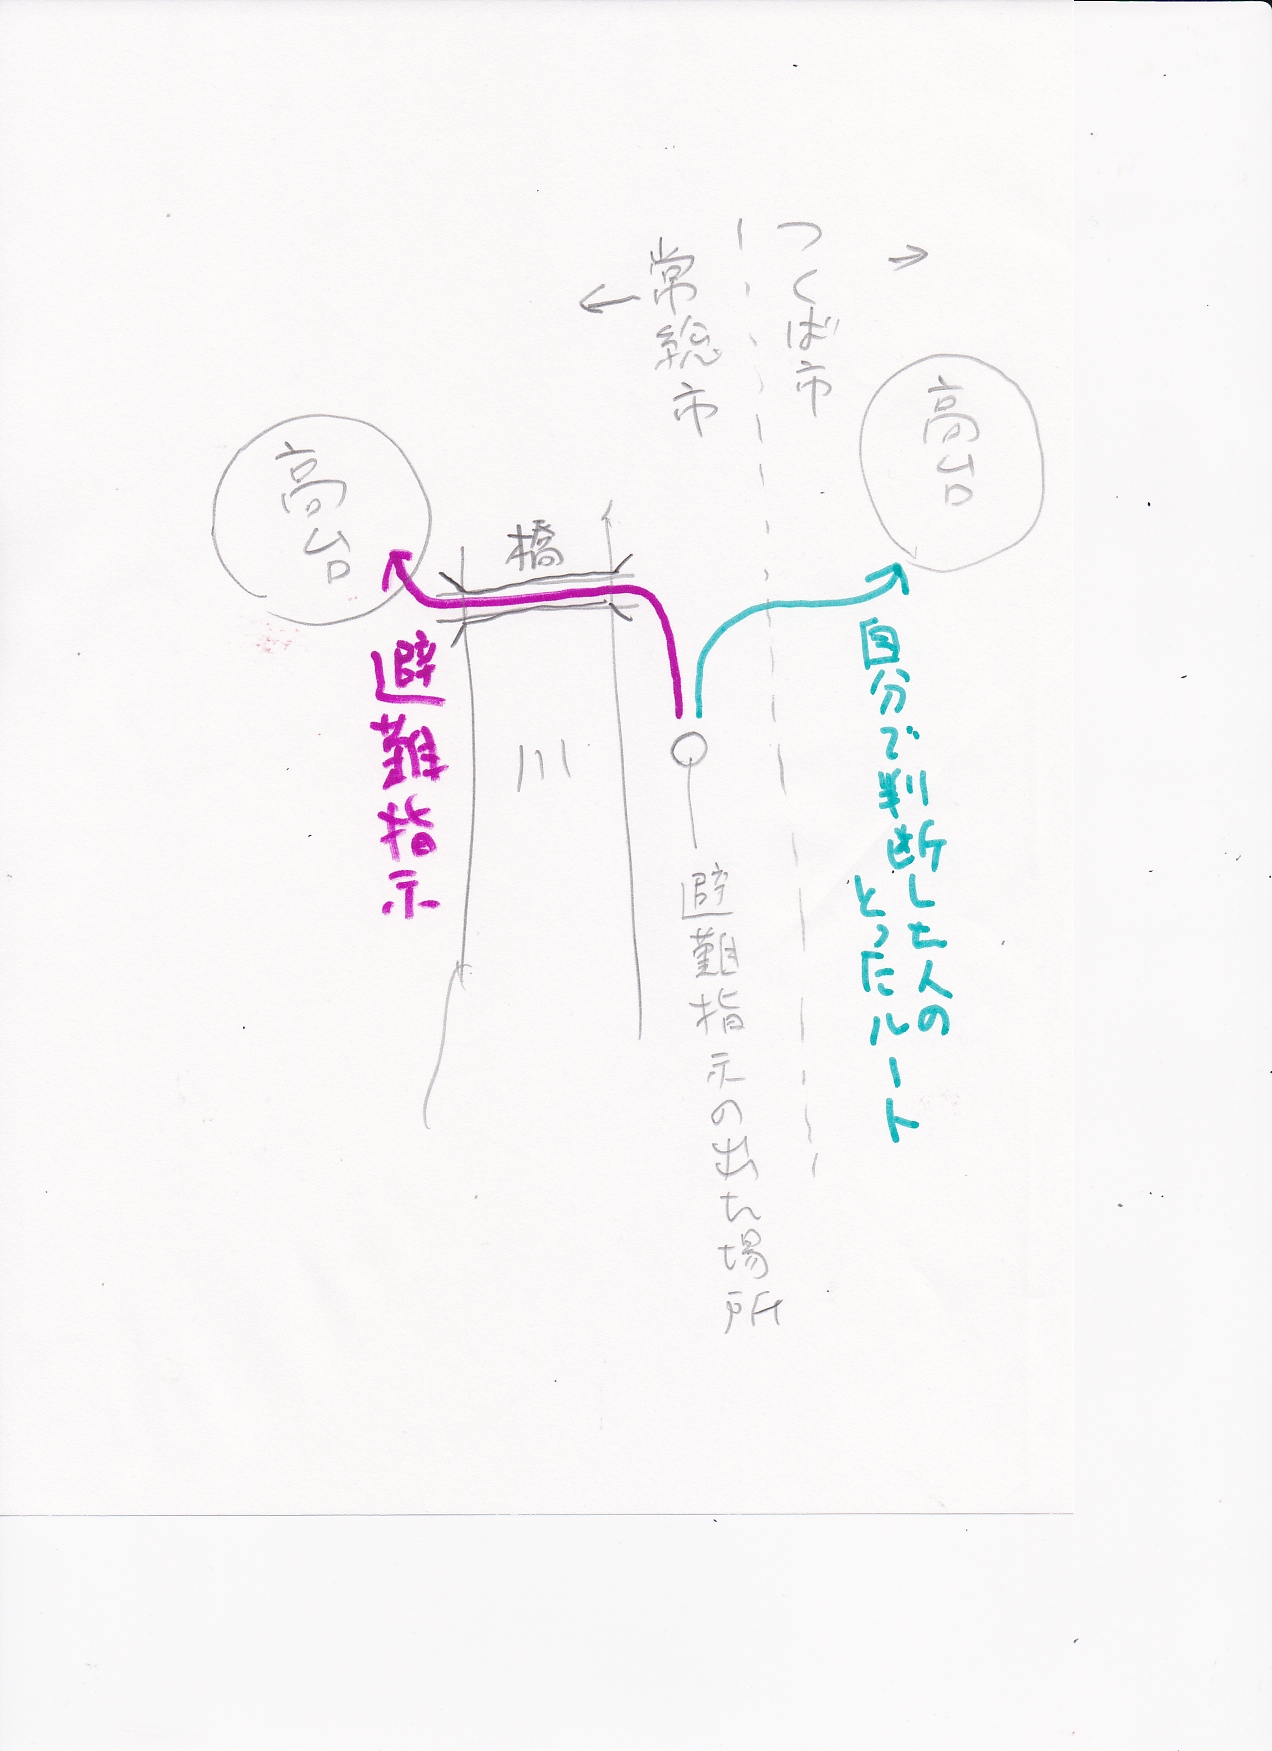 つくば市
常総市
高台
高台
橋
川
避難指示
自分で判断した人の
とったルート
避難指示の出た場所